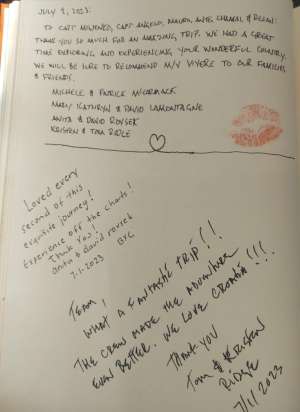 JULY 1, 2023
TO CAPT , CAPT ANGELO, MAURO, ANTE, &
THANK YOU SO MUCH FOR AN AMAZING TRIP. WE HAD A GREAT
TIME EXPLORING AND EXPERIENCING YOUR WONDERFUL COUNTRY.
WE WILL BE SURE TO RECOMMEND M/V VIVERE TO OUR FAMILIES
& FRIENDS.
MICHELE & PATRICE MCCORMACK
MARY KATHRYN & DAVID LAMONTAGNE
ANITA & DAVID ROVSEK
KRISTEN & TOM RIDGE
Loved every
second of this
exquisite journey!
Experience off the charts!
Thank You!
anita & david rovsek
7.1.2023 BYC
TEAM!
WHAT A FANTASTIC TRIP!!
THE CREW MADE THE ADVENTURE
EVEN BETTER. WE LOVE CROATIA!!!
THANK YOU
TOM & KRISTEN
RIDGE
7/1/2023